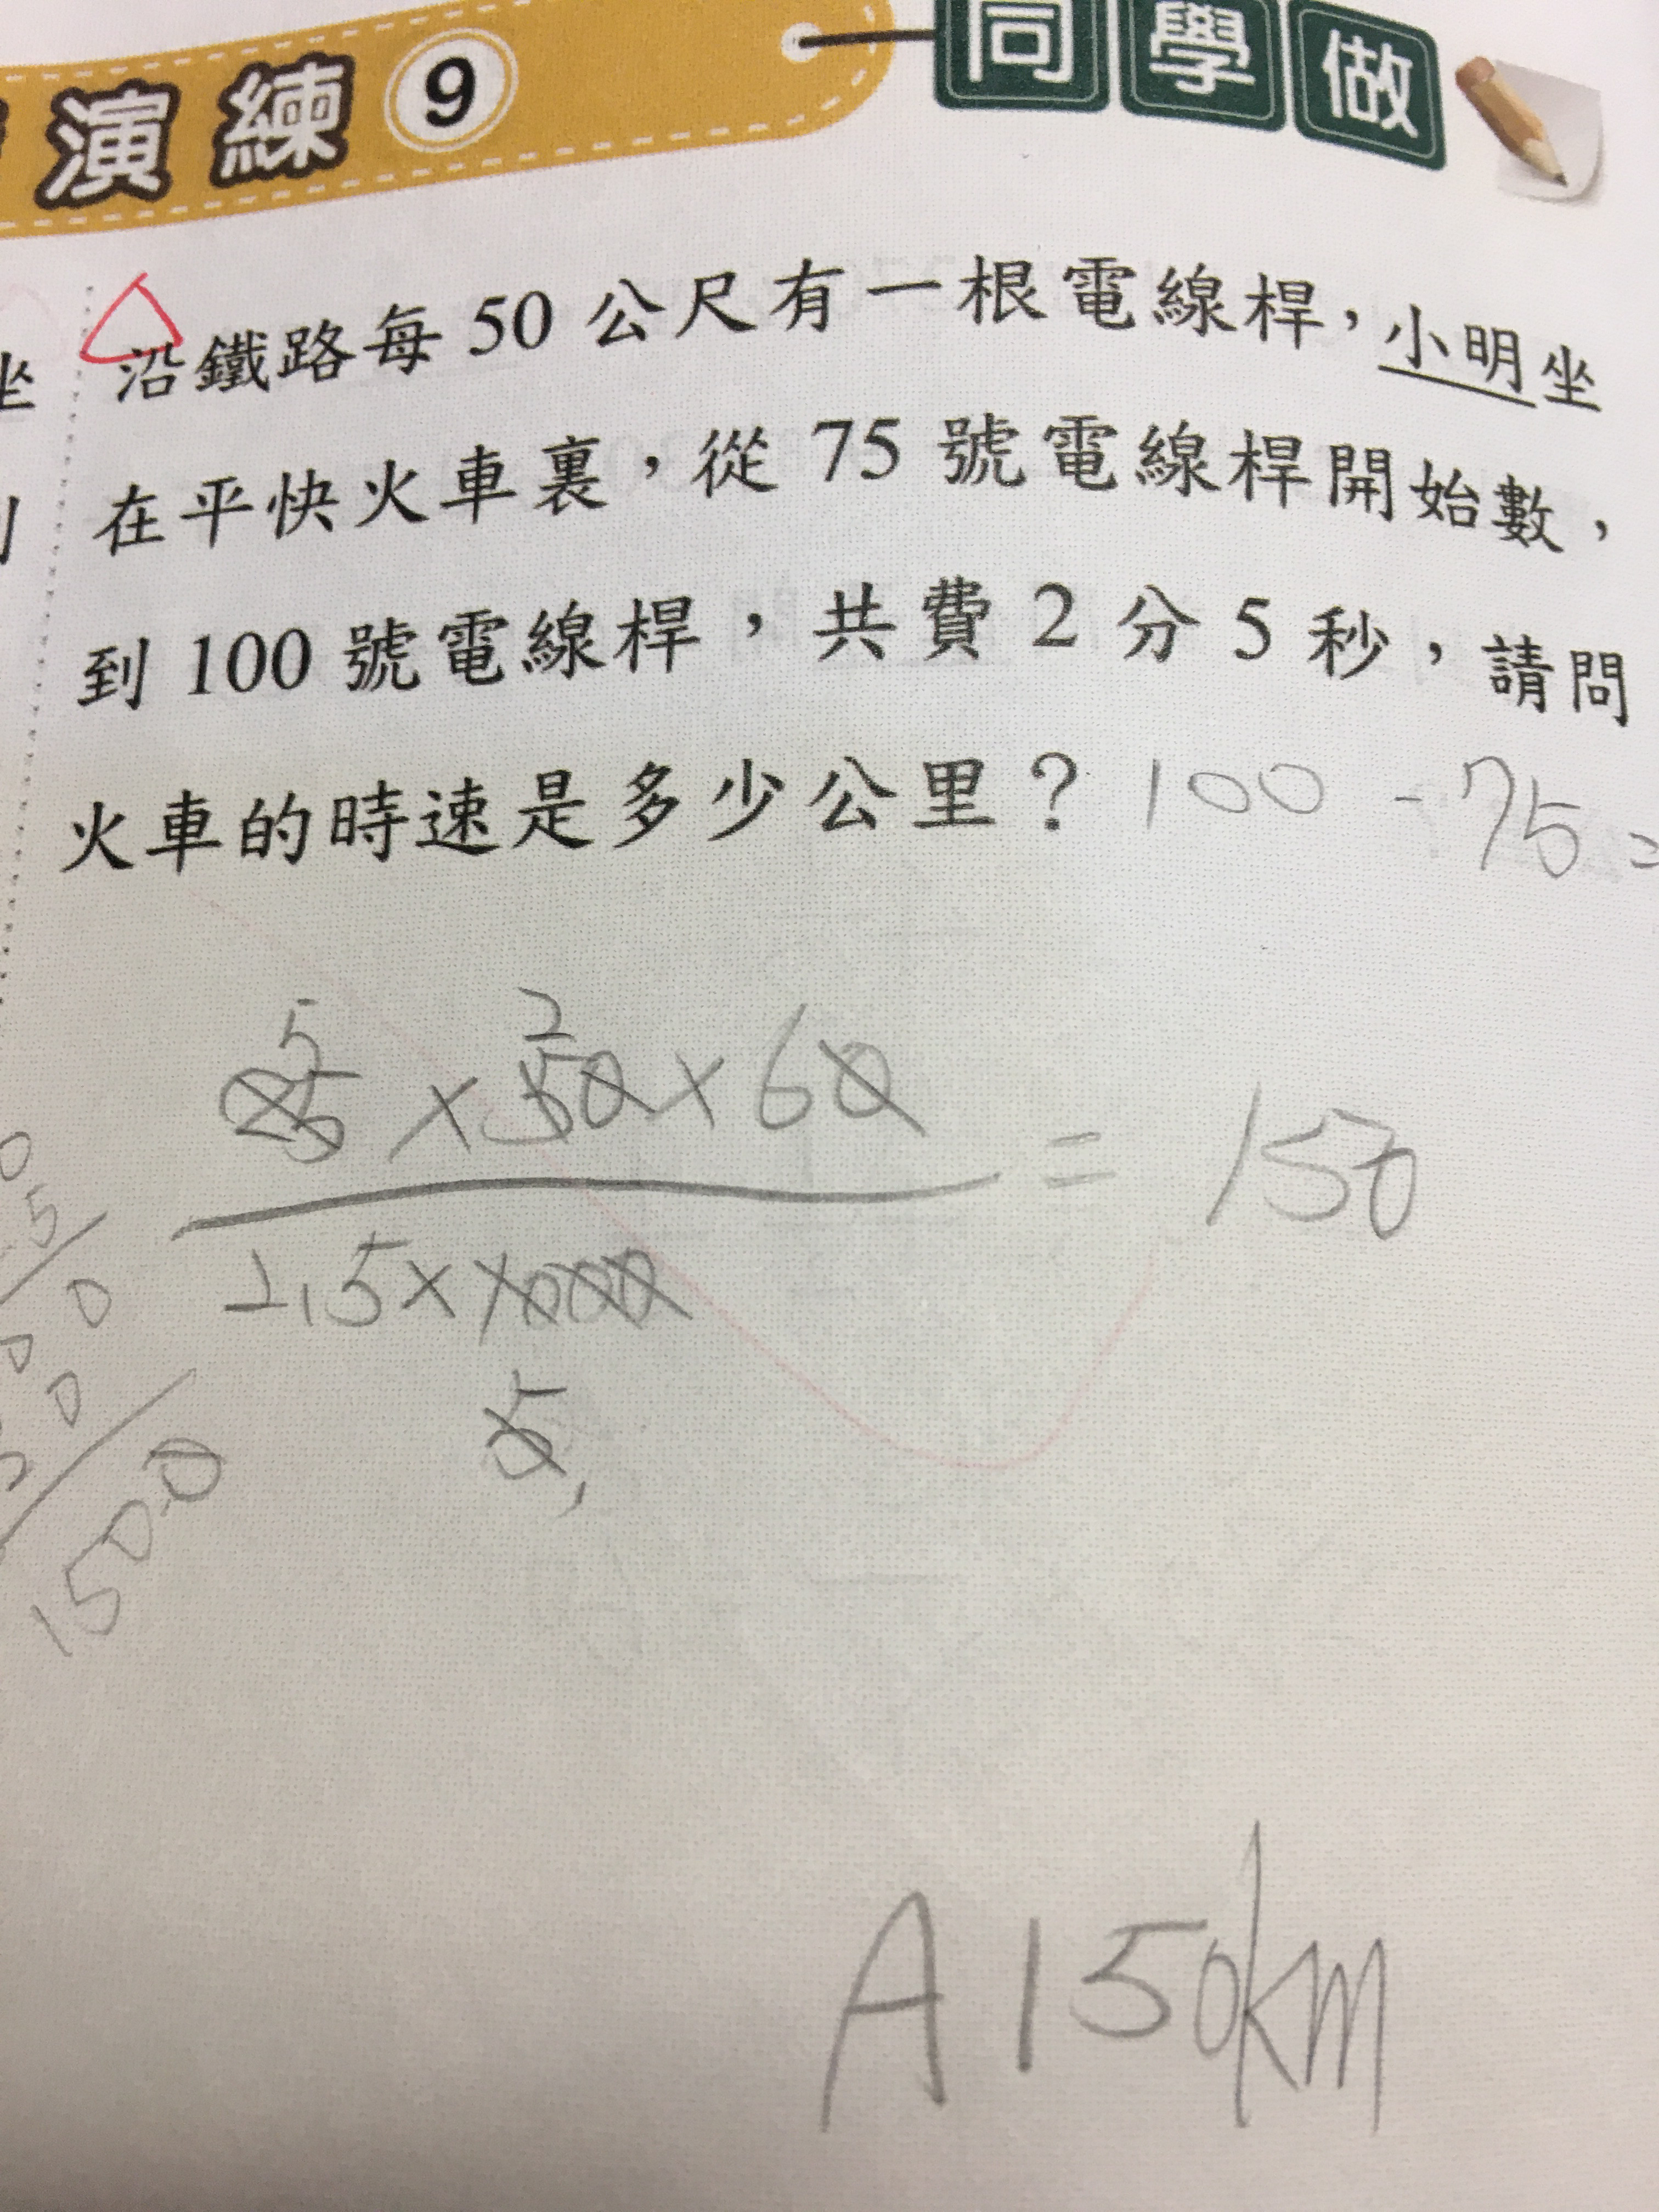 演練9 同學做
沿鐵路每 50 公尺有一根電線桿，小明坐
在平快火車裏，從 75 號電線桿開始數，
到 100 號電線桿，共費 2 分 5 秒，請問
火車的時速是多少公里？ 100 - 75 =
坐
5 2
25 × 50 × 60
= 150
2.5 × 1000
5
0
5
0
0
0
1500
A 150km